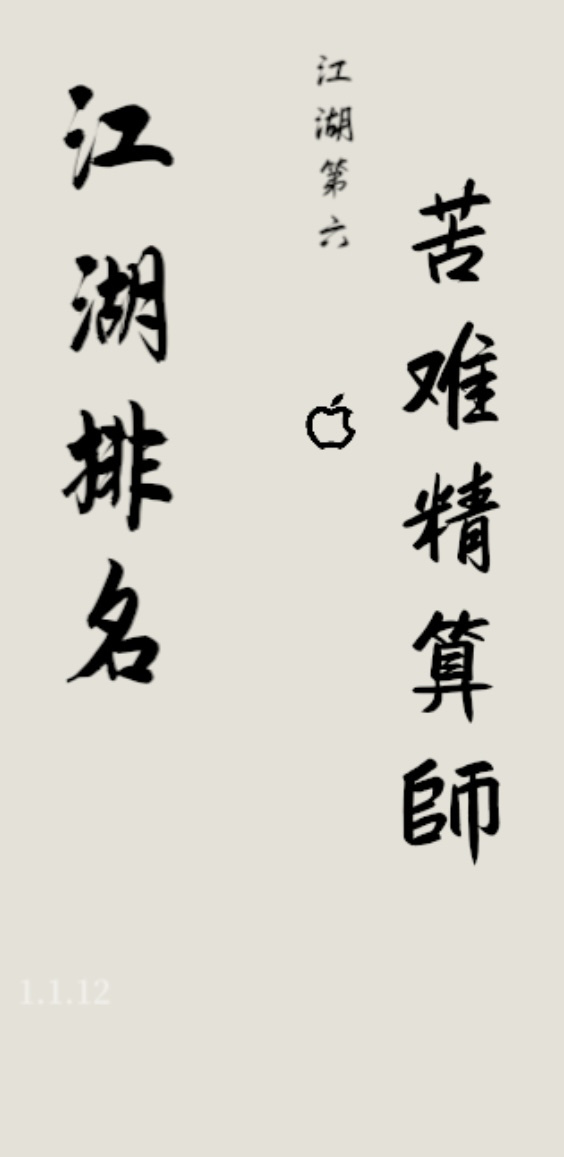 苦难精算師
江湖第六
江湖排名
1.1.12